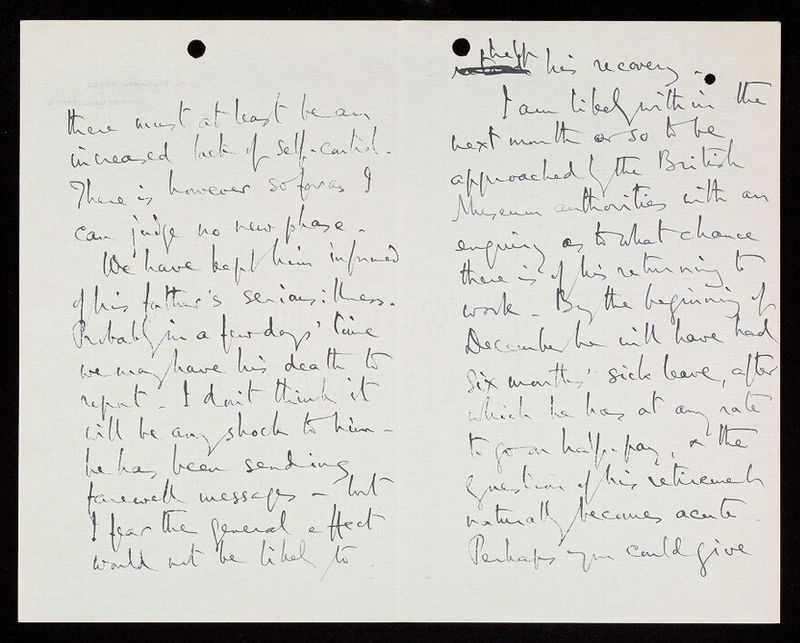 there must at least be an
increased lack of self-control.
There is however so far as I
can judge no new phase.
We have kept him informed
of his father's serious illness.
Probably in a few days' time
we may have his death to
report - I don't think it
will be any shock to him -
he has been sending
farewell messages - but
I fear the general effect
would not be likely to
help
his recovery -
I am likely within the
next month or so to be
approached by the British
Museum authorities with an
enquiry as to what chance
there is of his returning to
work - By the beginning of
December he will have had
six months' sick leave, after
which he has at any rate
to go on half-pay, & the
question of his retirement
naturally becomes acute.
Perhaps you could give